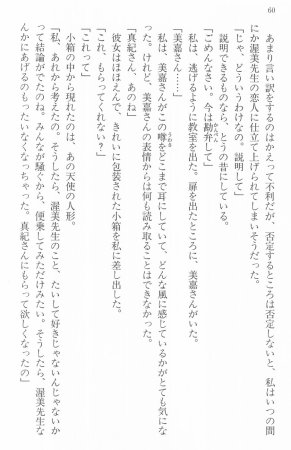 60
あまり言い訳をするのはかえって不利だが、否定するところは否定しないと、私はいつの間
にか渥美先生の恋人に仕立て上げられてしまいそうだった。
「じゃ、どういうわけなの。説明して」
説明できるものなら、とうの昔にしている。
「ごめんなさい、今は勘弁して」
かんべん
私は、逃げるように教室を出た。扉を出たところに、美嘉さんがいた。
「美嘉さん……」
私は、美嘉さんがこの噂をどこまで耳にしていて、どんな風に感じているかがとても気にな
うわさ
った。けれど、美嘉さんの表情からは何も読み取ることはできなかった。
「真紀さん、あのね」
彼女はほほえんで、きれいに包装された小箱を私に差し出した。
「これ、もらってくれない?」
「これって」
小箱の中から現れたのは、あの天使の人形。
「私、あれから考えたの。そうしたら、渥美先生のこと、たいして好きじゃないんじゃないか
って結論がでたのね。みんなが騒ぐから、便乗してみただけみたい。そうしたら、渥美先生な
んかにあげるのもったいなくなっちゃった。真紀さんにもらって欲しくなったの」